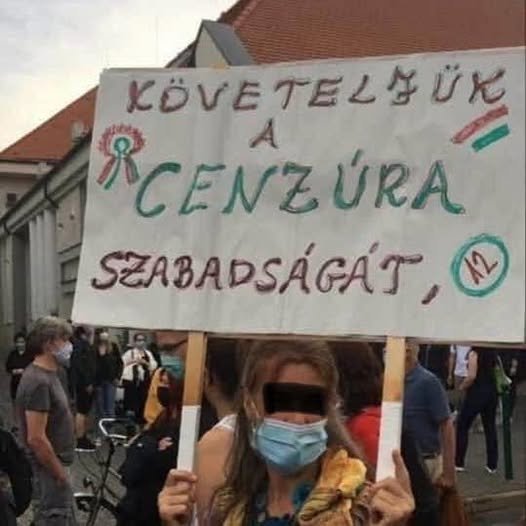 KÖVETELJÜK
A
CENZÚRA
SZABADSÁGÁT, 12